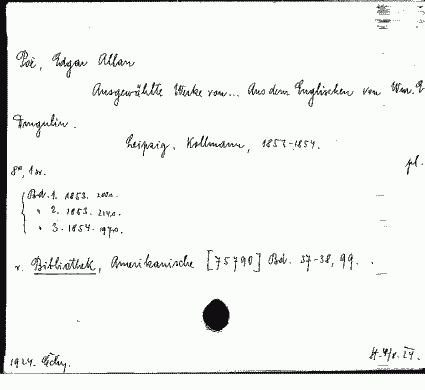 Poë, Edgar Allan
Ausgewählte Werke von... Aus dem Englischen von Wm. E
Drugulin.
Leipzig. Kollmann, 1853-1854.
pl.
8°, 1 Br.
Bd. 1. 1853.
" 2. 1853.
" 3. 1854.
v. Bibliothek, Amerikanische [75790] Bd. 37-38, 99.
1924.